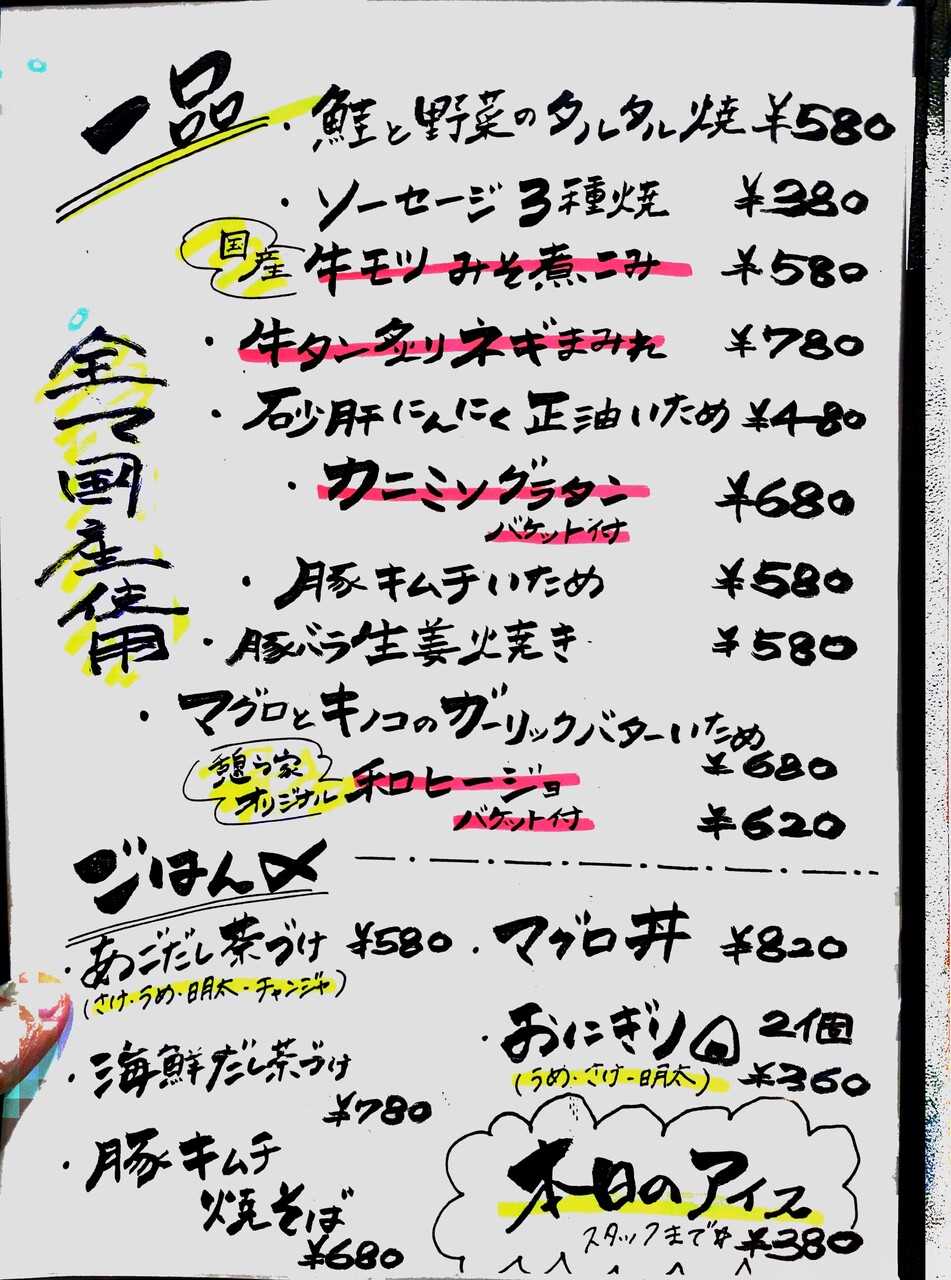 一品
・鮭と野菜のタルタル焼 ¥580
・ソーセージ3種焼 ¥380
国産 牛モツみそ煮こみ ¥580
・牛タン炙りネギまみれ ¥780
・砂肝にんにく正油いため ¥480
・カニミソグラタン ¥680
バケット付
・豚キムチいため ¥580
・豚バラ生姜焼き ¥580
・マグロとキノコのガーリックバターいため
¥680
憩う家
オリジナル
和ヒージョ
バケット付 ¥620
全て国産使用
ごはん〆
・あごだし茶づけ ¥580
(さけ・うめ・明太・チャンジャ)
・海鮮だし茶づけ
¥780
・豚キムチ
焼そば
¥680
・マグロ丼 ¥820
・おにぎり 2個
(うめ・さけ・明太) ¥360
本日のアイス
スタッフまで ¥380